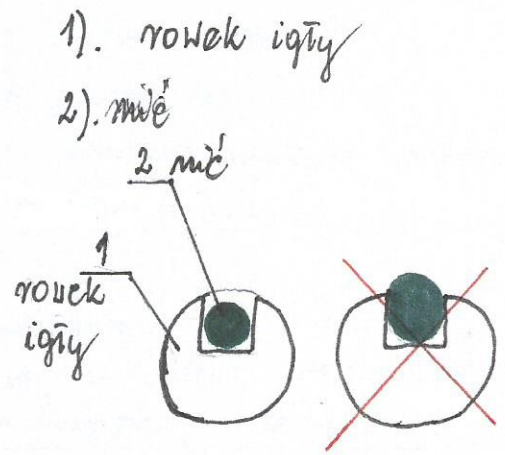 1). rowek igły
2). nić
2 nić
1
rowek
igły